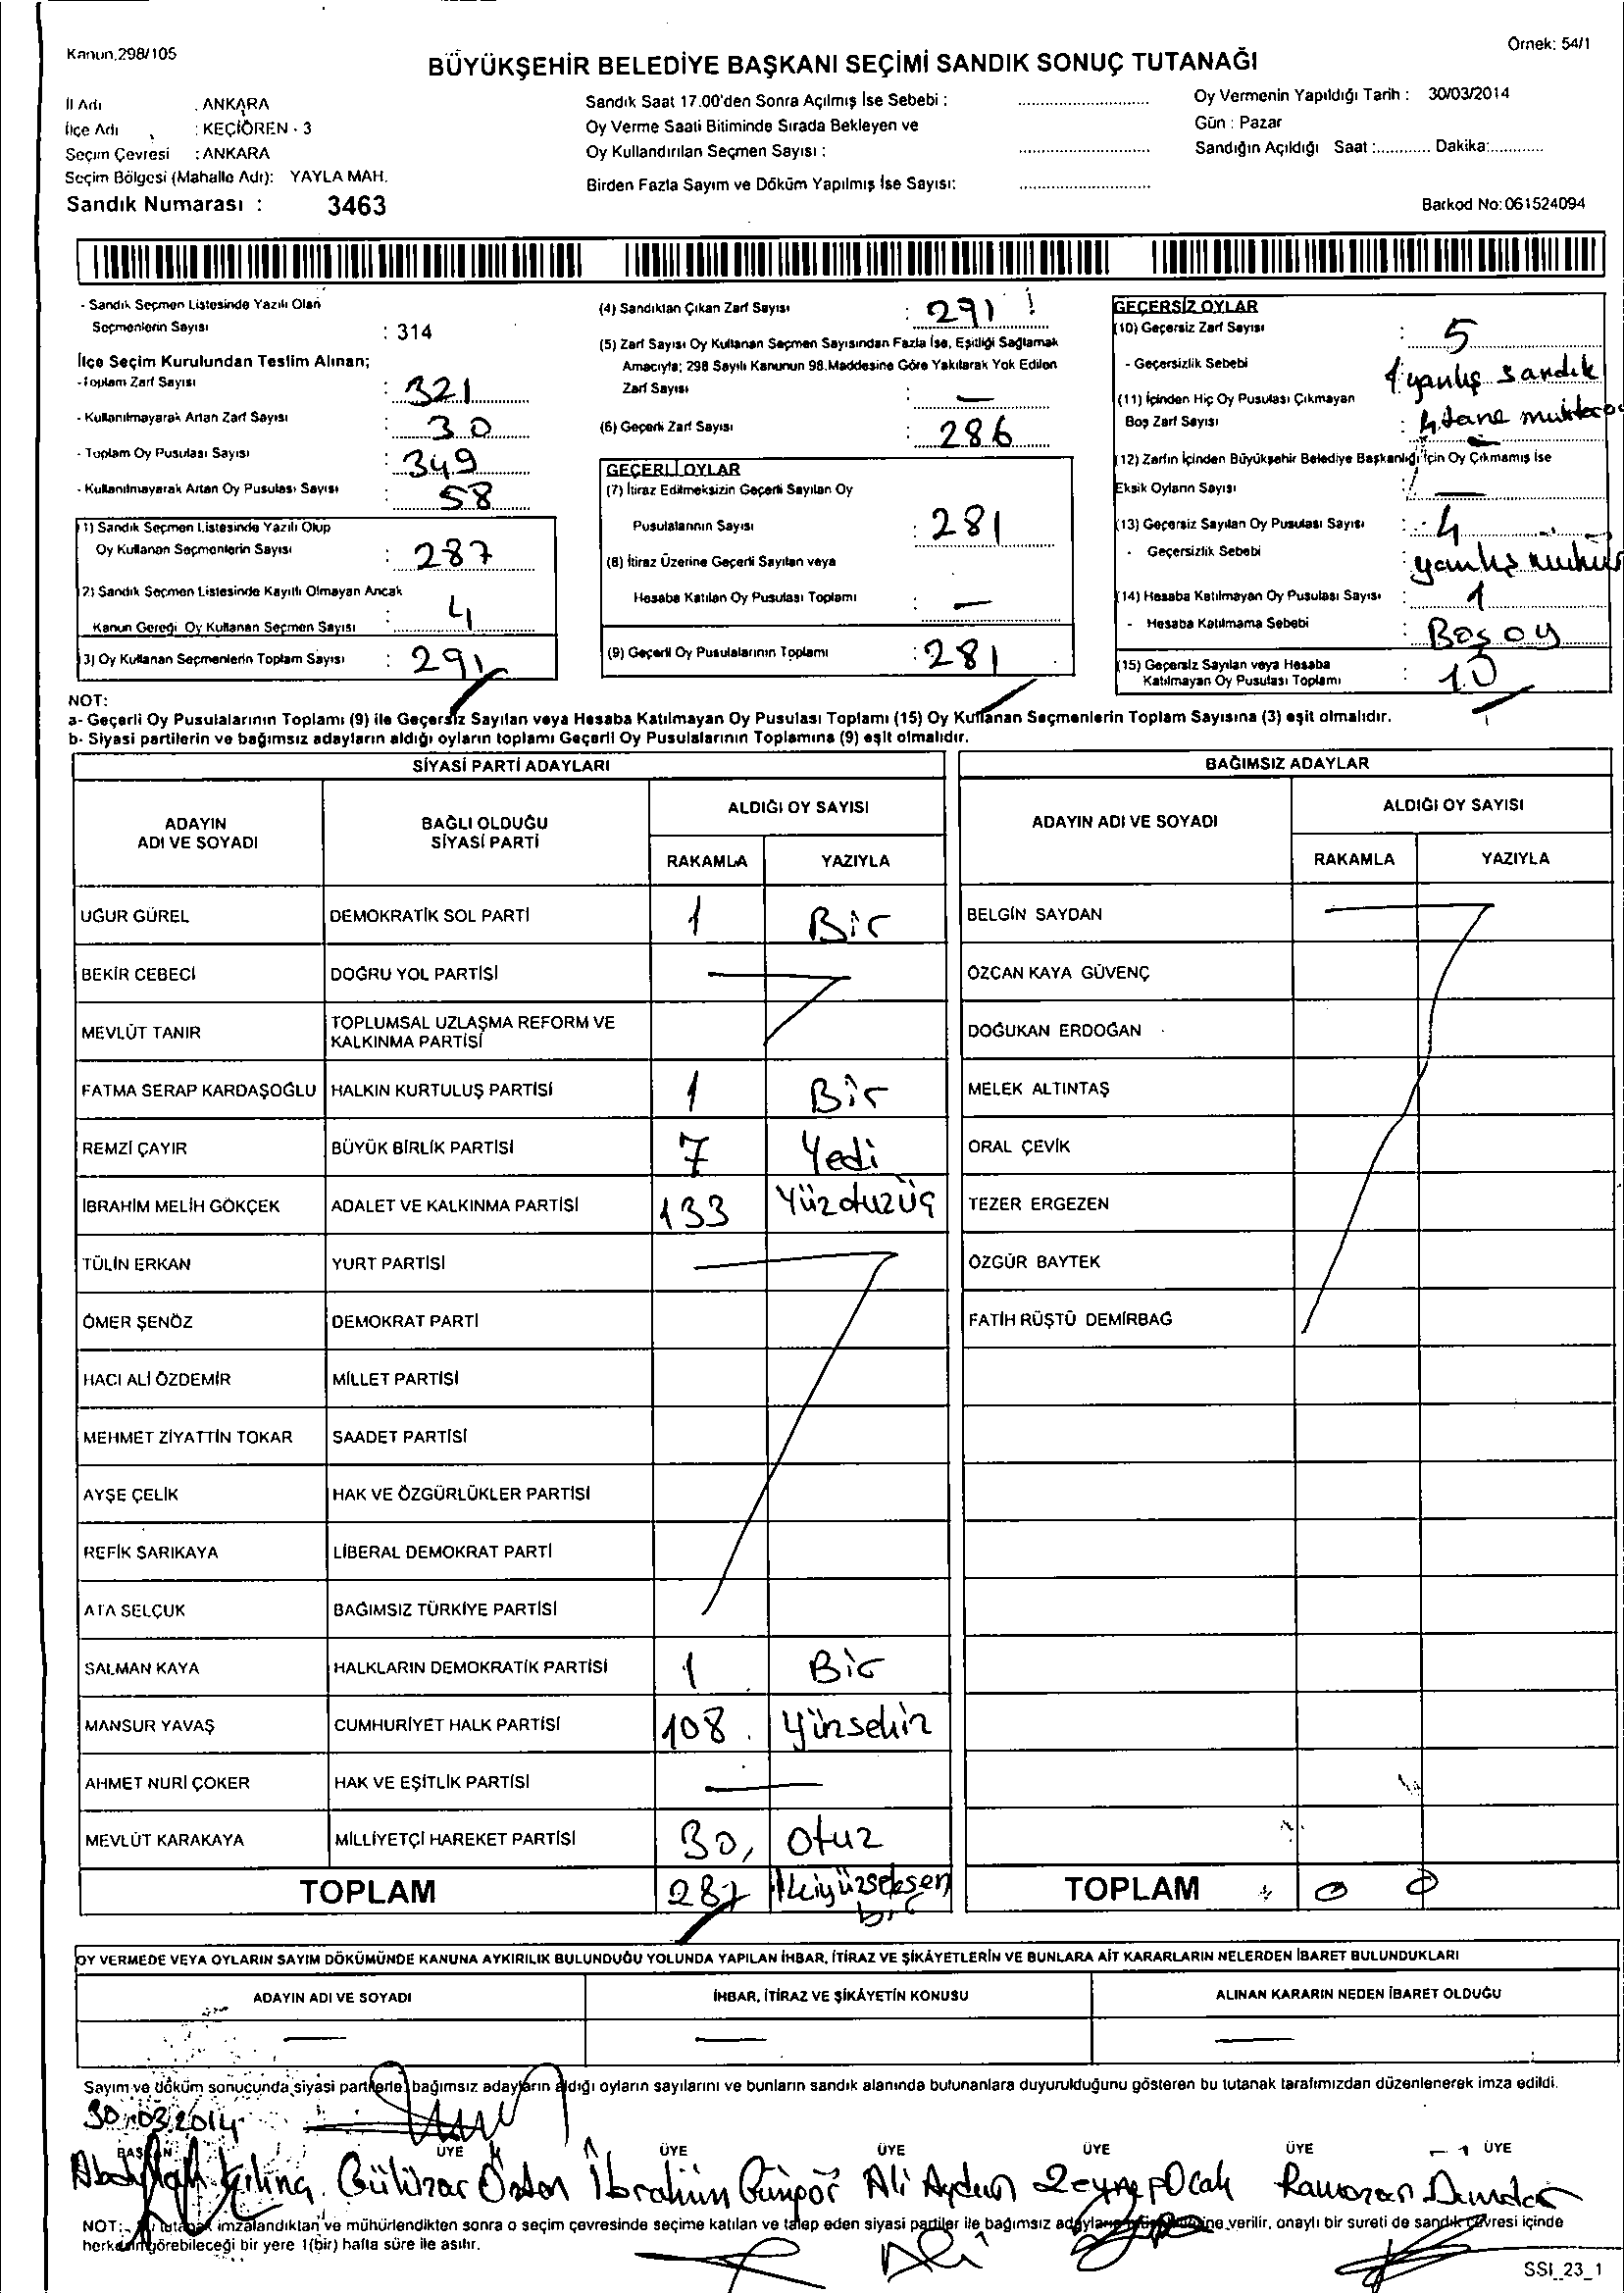 Kanun.298/105
Örnek: 54/1
BÜYÜKŞEHİR BELEDİYE BAŞKANI SEÇİMİ SANDIK SONUÇ TUTANAĞI
İl Adı : ANKARA
İlçe Adı : KEÇİÖREN - 3
Seçim Çevresi : ANKARA
Seçim Bölgesi (Mahalle Adı): YAYLA MAH.
Sandık Numarası : 3463
Sandık Saat 17.00'den Sonra Açılmış İse Sebebi :
Oy Verme Saati Bitiminde Sırada Bekleyen ve
Oy Kullandırılan Seçmen Sayısı :
Birden Fazla Sayım ve Döküm Yapılmış İse Sayısı:
Oy Vermenin Yapıldığı Tarih : 30/03/2014
Gün : Pazar
Sandığın Açıldığı Saat :............ Dakika:............
Barkod No:061524094
- Sandık Seçmen Listesinde Yazılı Olan
Seçmenlerin Sayısı : 314
İlçe Seçim Kurulundan Teslim Alınan;
-Toplam Zarf Sayısı : 321
- Kullanılmayarak Artan Zarf Sayısı : 30
- Toplam Oy Pusulası Sayısı : 349
- Kullanılmayarak Artan Oy Pusulası Sayısı 58
1) Sandık Seçmen Listesinde Yazılı Olup
Oy Kullanan Seçmenlerin Sayısı : 287
2) Sandık Seçmen Listesinde Kayıtlı Olmayan Ancak
Kanun Gereği Oy Kullanan Seçmen Sayısı : 4
3) Oy Kullanan Seçmenlerin Toplam Sayısı : 291
(4) Sandıktan Çıkan Zarf Sayısı : 291
(5) Zarf Sayısı Oy Kullanan Seçmen Sayısından Fazla İse, Eşitliği Sağlamak
Amacıyla; 298 Sayılı Kanunun 98.Maddesine Göre Yakılarak Yok Edilen
Zarf Sayısı : —
(6) Geçerli Zarf Sayısı : 286
GEÇERLİ OYLAR
(7) İtiraz Edilmeksizin Geçerli Sayılan Oy
Pusulalarının Sayısı : 281
(8) İtiraz Üzerine Geçerli Sayılan veya
Hesaba Katılan Oy Pusulası Toplamı : —
(9) Geçerli Oy Pusulalarının Toplamı : 281
GEÇERSİZ OYLAR
(10) Geçersiz Zarf Sayısı : 5
- Geçersizlik Sebebi 1 yanlış sandık
(11) İçinden Hiç Oy Pusulası Çıkmayan
Boş Zarf Sayısı : 4 tane —
(12) Zarfın İçinden Büyükşehir Belediye Başkanlığı İçin Oy Çıkmamış İse
Eksik Oyların Sayısı : —
(13) Geçersiz Sayılan Oy Pusulası Sayısı : 4
- Geçersizlik Sebebi : yanlış mühür
(14) Hesaba Katılmayan Oy Pusulası Sayısı : 1
- Hesaba Katılmama Sebebi : Boş oy
(15) Geçersiz Sayılan veya Hesaba
Katılmayan Oy Pusulası Toplamı : 10
NOT:
a- Geçerli Oy Pusulalarının Toplamı (9) ile Geçersiz Sayılan veya Hesaba Katılmayan Oy Pusulası Toplamı (15) Oy Kullanan Seçmenlerin Toplam Sayısına (3) eşit olmalıdır.
b- Siyasi partilerin ve bağımsız adayların aldığı oyların toplamı Geçerli Oy Pusulalarının Toplamına (9) eşit olmalıdır.
SİYASİ PARTİ ADAYLARI
ADAYIN ADI VE SOYADI BAĞLI OLDUĞU SİYASİ PARTİ ALDIĞI OY SAYISI
RAKAMLA YAZIYLA
UĞUR GÜREL DEMOKRATİK SOL PARTİ 1 Bir
BEKİR CEBECİ DOĞRU YOL PARTİSİ
MEVLÜT TANIR TOPLUMSAL UZLAŞMA REFORM VE KALKINMA PARTİSİ
FATMA SERAP KARDAŞOĞLU HALKIN KURTULUŞ PARTİSİ 1 Bir
REMZİ ÇAYIR BÜYÜK BİRLİK PARTİSİ 7 Yedi
İBRAHİM MELİH GÖKÇEK ADALET VE KALKINMA PARTİSİ 133 Yüzotuzüç
TÜLİN ERKAN YURT PARTİSİ
ÖMER ŞENÖZ DEMOKRAT PARTİ
HACI ALİ ÖZDEMİR MİLLET PARTİSİ
MEHMET ZİYATTİN TOKAR SAADET PARTİSİ
AYŞE ÇELİK HAK VE ÖZGÜRLÜKLER PARTİSİ
REFİK SARIKAYA LİBERAL DEMOKRAT PARTİ
ATA SELÇUK BAĞIMSIZ TÜRKİYE PARTİSİ
SALMAN KAYA HALKLARIN DEMOKRATİK PARTİSİ 1 Bir
MANSUR YAVAŞ CUMHURİYET HALK PARTİSİ 108 Yüzsekiz
AHMET NURİ ÇOKER HAK VE EŞİTLİK PARTİSİ —
MEVLÜT KARAKAYA MİLLİYETÇİ HAREKET PARTİSİ 30, Otuz
TOPLAM 281 İkiyüzseksen bir
BAĞIMSIZ ADAYLAR
ADAYIN ADI VE SOYADI ALDIĞI OY SAYISI
RAKAMLA YAZIYLA
BELGİN SAYDAN
ÖZCAN KAYA GÜVENÇ
DOĞUKAN ERDOĞAN
MELEK ALTINTAŞ
ORAL ÇEVİK
TEZER ERGEZEN
ÖZGÜR BAYTEK
FATİH RÜŞTÜ DEMİRBAĞ
TOPLAM 0 0
OY VERMEDE VEYA OYLARIN SAYIM DÖKÜMÜNDE KANUNA AYKIRILIK BULUNDUĞU YOLUNDA YAPILAN İHBAR, İTİRAZ VE ŞİKÂYETLERİN VE BUNLARA AİT KARARLARIN NELERDEN İBARET BULUNDUKLARI
ADAYIN ADI VE SOYADI İHBAR, İTİRAZ VE ŞİKÂYETİN KONUSU ALINAN KARARIN NEDEN İBARET OLDUĞU
— — —
Sayım ve döküm sonucunda siyasi partilerle bağımsız adayların aldığı oyların sayılarını ve bunların sandık alanında bulunanlara duyurulduğunu gösteren bu tutanak tarafımızdan düzenlenerek imza edildi.
30.03.2014
BAŞKAN ÜYE ÜYE ÜYE ÜYE ÜYE ÜYE
Abdullah Kılınç Gülizar Özden İbrahim Güngör Ali Aydın Zeynep Ocak Ramazan Dündar
NOT:- Bu tutanak imzalandıktan ve mühürlendikten sonra o seçim çevresinde seçime katılan ve talep eden siyasi partiler ile bağımsız adaylara verilir, onaylı bir sureti de sandık çevresi içinde
herkesin görebileceği bir yere 1(bir) hafta süre ile asılır.
Ali
SSI_23_1